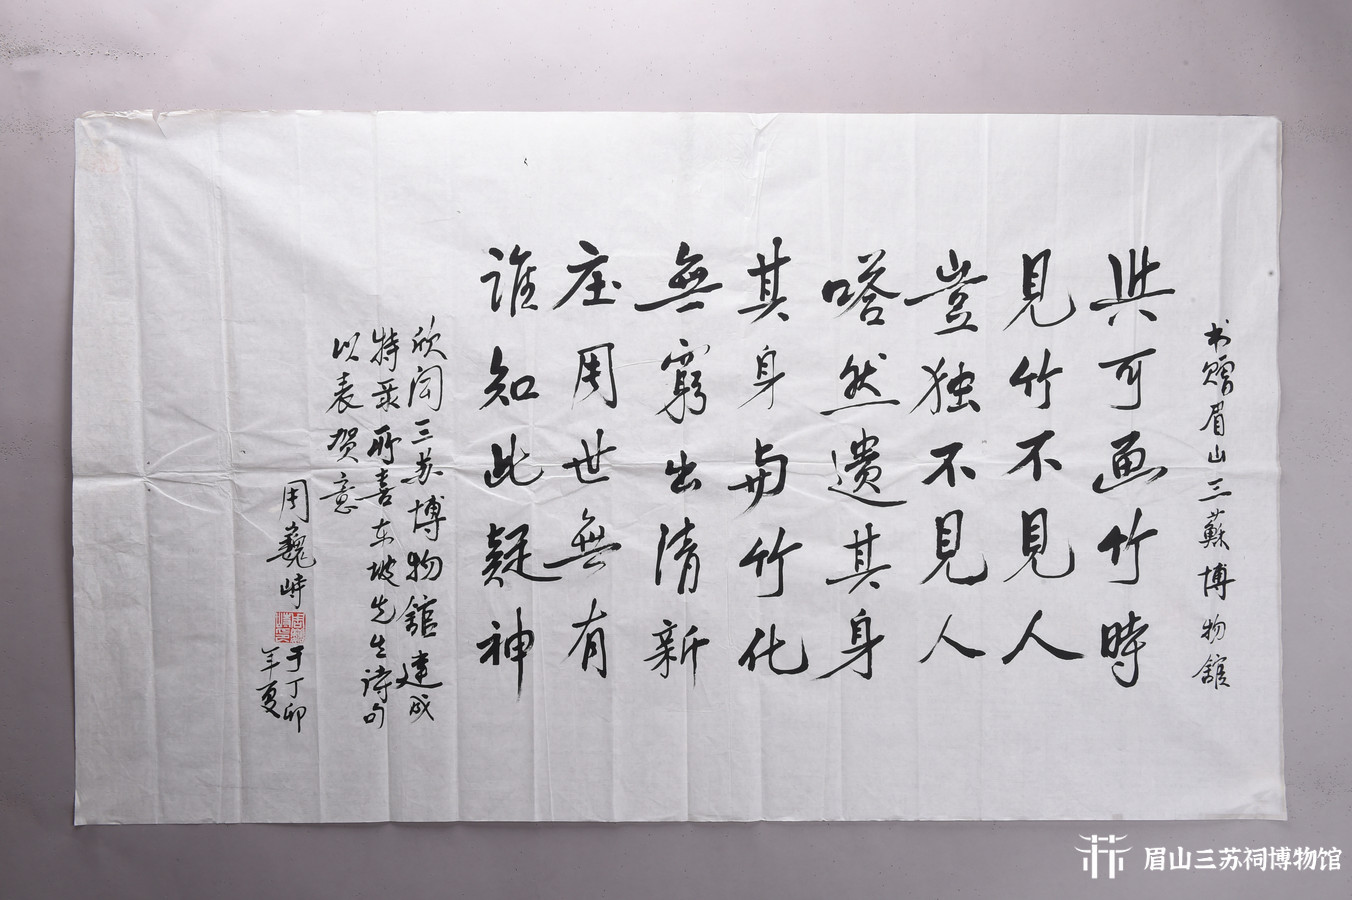 书赠眉山三蘇博物舘
與可画竹時
見竹不見人
豈独不見人
嗒然遗其身
其身與竹化
無窮出清新
庄周世無有
谁知此疑神
欣闻三苏博物舘建成
特录所喜东坡先生诗句
以表贺意
周巍峙
于丁卯
年夏
眉山三苏祠博物馆